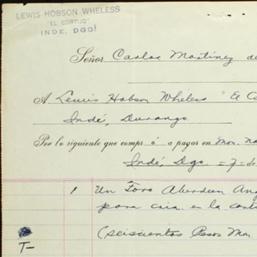 LEWIS HOBSON WHELESS
"EL CORTIJO"
INDE, DGO.
Señor Carlos Martinez de
A Lewis Hobson Wheless "El C
Indé, Durango
Por lo siguiente que compr ó a pagar en Mon. Na
Indé Dgo - 7- de
1 Un Toro Aberdeen Ang
para cria en la
(Seiscientos Pesos Mon.
T-